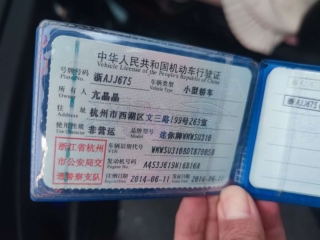 中华人民共和国机动车行驶证
Vehicle License of the People's Republic of China
号牌号码 浙AJJ675 车辆类型 小型轿车
Plate No. Vehicle Type
所有人 亢晶晶
Owner
住址 杭州市西湖区文三路199号263室
Address
使用性质 非营运 品牌型号 迷你牌WMWSU310
Use Character Model
浙江省杭州
市公安局交
通警察支队
车辆识别代号
VIN
发动机号码
Engine No.
注册日期 2014-06-11 发证日期 2014-06-11
Register Date Issue Date
浙AJJ675